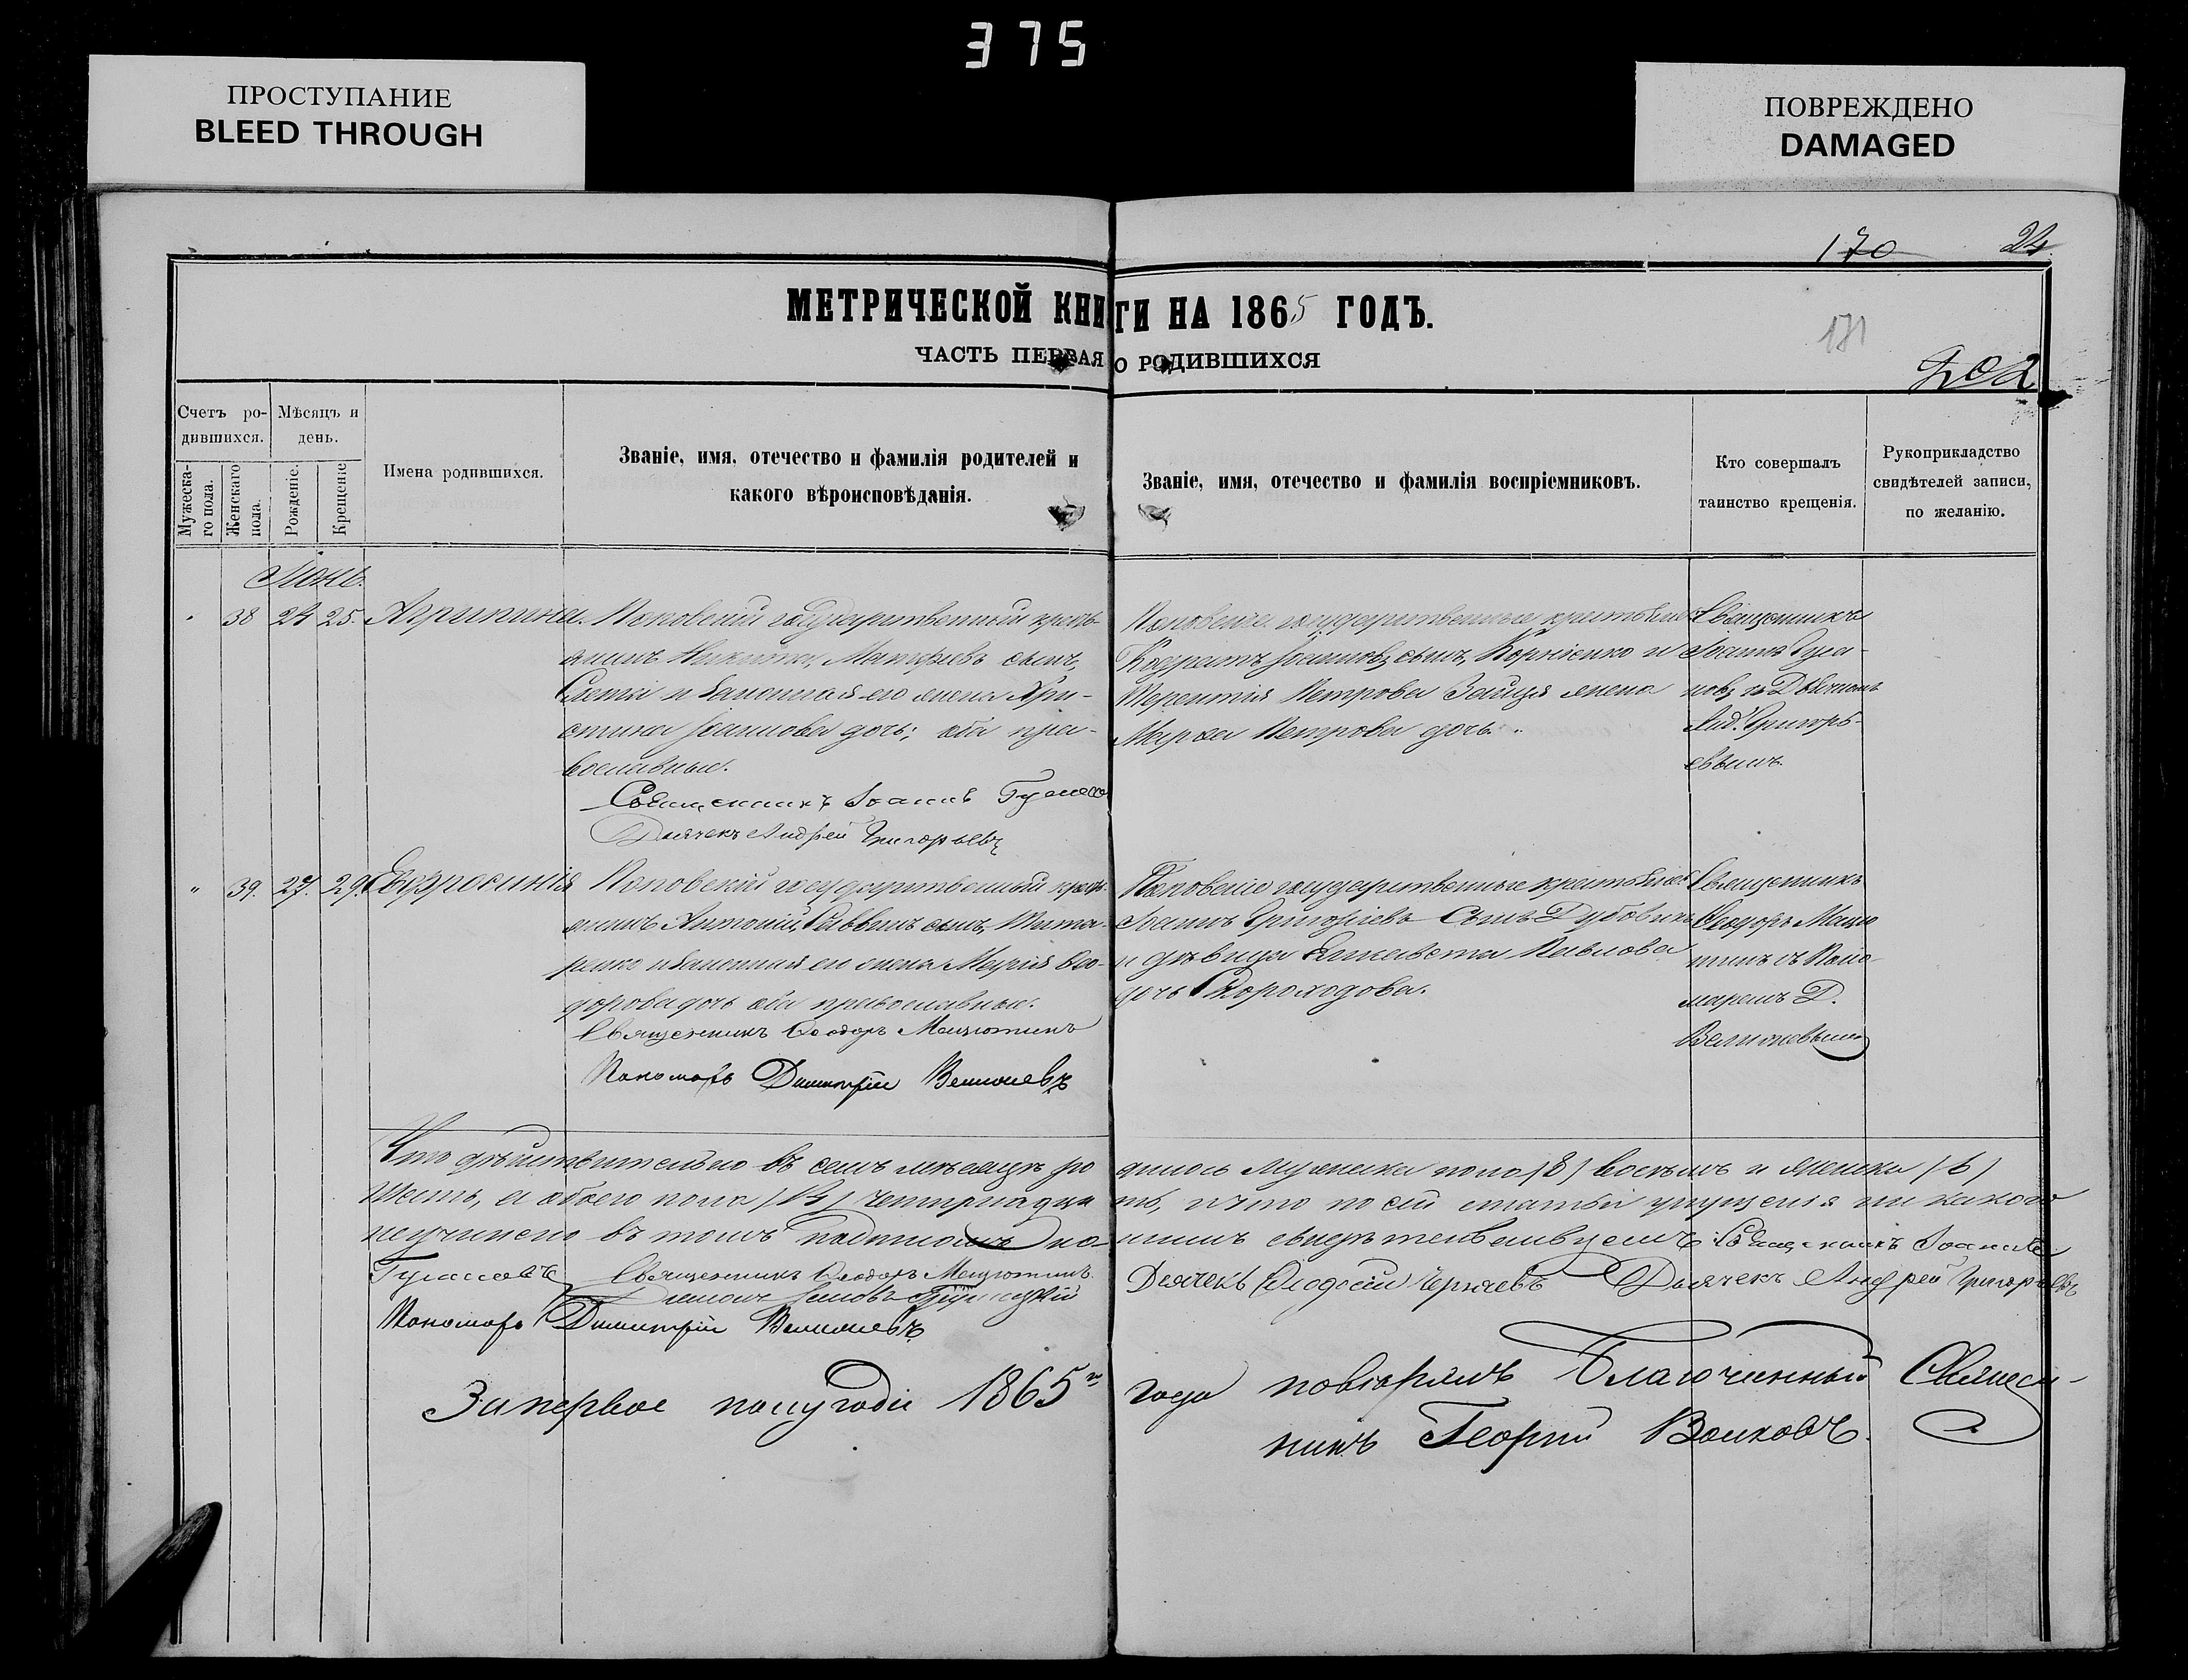 375
ПРОСТУПАНИЕ
BLEED THROUGH
ПОВРЕЖДЕНО
DAMAGED
170
24
МЕТРИЧЕСКОЙ КНИГИ НА 1865 ГОДЪ.
171
ЧАСТЬ ПЕРВАЯ О РОДИВШИХСЯ
202
Счетъ ро-
дившихся.
Мѣсяцъ и
день.
Мужеска-
го пола.
Женскаго
пола.
Рожденіе.
Крещеніе
Имена родившихся.
Званіе, имя, отечество и фамилія родителей и
какого вѣроисповѣданія.
Званіе, имя, отечество и фамилія воспріемниковъ.
Кто совершалъ
таинство крещенія.
Рукоприкладство
свидѣтелей записи,
по желанію.
Іюнь.
38 24 25. Агрипина. Поповскій государственный кресть-
янинъ Никита, Матфіевъ сынъ,
и законная его жена Хри-
стина Іоаннова дочь; оба пра-
вославные.
Священникъ Іоаннъ
Дьячекъ Андрей Григорьевъ
Поповскіе государственные крестьяне
Кодратъ Іоанновъ сынъ, Корніенко и
Терентія Петрова Зайца жена
Марѳа Петрова дочь.
Священникъ
Іоаннъ Гула-
новъ съ Дьячкомъ
Анд. Григорь-
евымъ.
" 39. 27. 29. Евфросинія Поповскій государственный кресть-
янинъ Антоній, Саввинъ сынъ, Тита-
ренко и законная его жена Марія Ѳео-
дорова дочь оба православные.
Священникъ Ѳеодоръ Мацютинъ
Пономарь Димитрій Велижевъ
Поповскіе государственные крестьяне
Іоаннъ Григоріевъ Сынъ Дубовикъ
и дѣвица Елисавета Павлова
дочь Скороходова.
Священникъ
Ѳеодоръ Мацю
тинъ съ Поно-
маремъ Д.
Велижевымъ
Что дѣйствительно въ семъ мѣсяцѣ родилось Мужеска пола (8) восемь и Женска (6)
Шесть, а обоего пола (14) четтрнадцать, и что по сей статьи упущенія ни какого
неучинено въ томъ подписомъ нашимъ свидѣтельствуемъ: Священникъ Іоаннъ
Гулановъ Священникъ Ѳеодоръ Мацютинъ Дьячекъ Ѳеодосій Черняевъ Дьячекъ Андрей Григорьевъ
Пономарь Димитрій Велижевъ
За первое полугодіе 1865 г. года повѣрялъ Благочинный Священ-
никъ Георгій Волковъ.